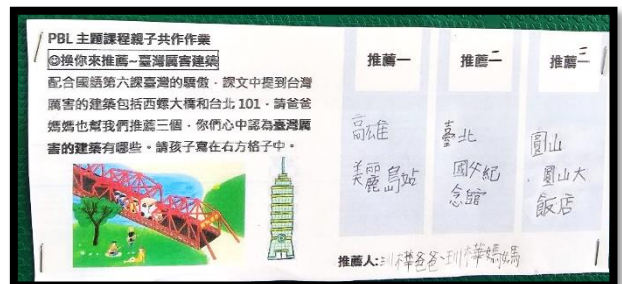 PBL 主題課程親子共作作業
☺換你來推薦~臺灣厲害建築
配合國語第六課臺灣的驕傲,課文中提到台灣
厲害的建築包括西螺大橋和台北 101,請爸爸
媽媽也幫我們推薦三個,你們心中認為臺灣厲
害的建築有哪些。請孩子寫在右方格子中。
推薦一
高雄
美麗島站
推薦二
臺北
國父紀
念館
推薦三
圓山
圓山大
飯店
推薦人:
爸爸、
媽媽